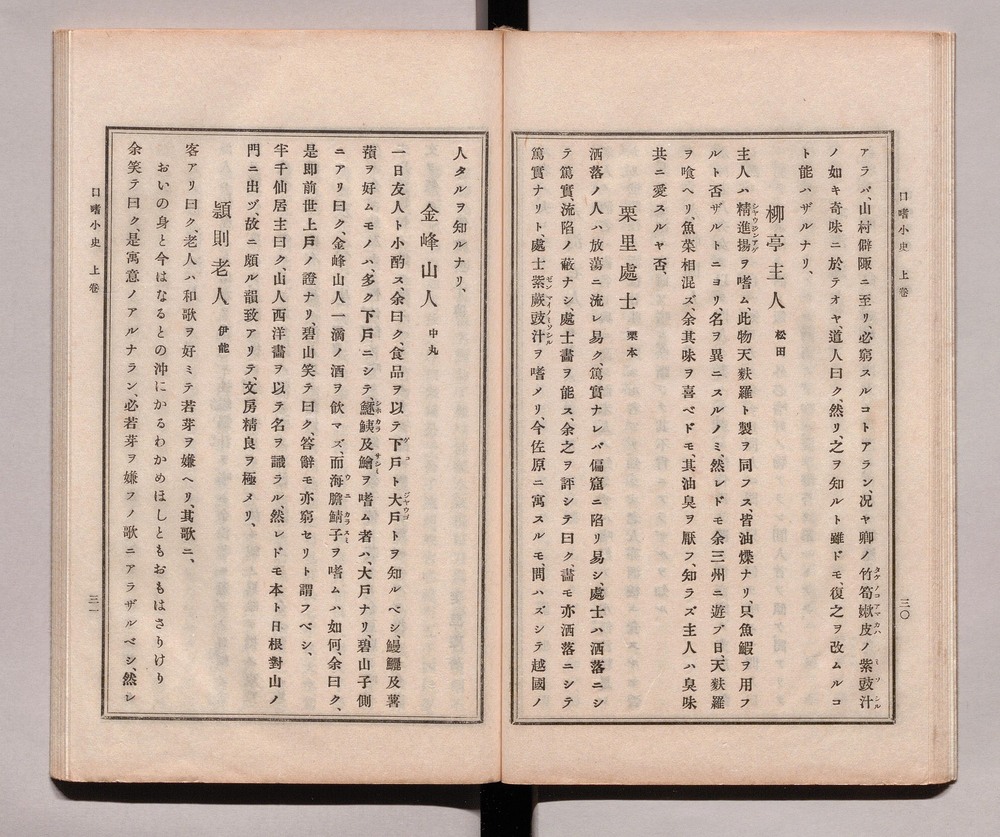 口嗜小史　上卷
三〇
アラバ、山村僻陬ニ至リ、必窮スルコトアラン、况ヤ卿ノ竹筍嫰皮ノ紫豉汁
ノ如キ奇味ニ於テオヤ、道人曰ク、然リ、之ヲ知ルト雖ドモ、復之ヲ改ムルコ
ト能ハザルナリ、
柳亭主人　松田
主人ハ精進揚ヲ嗜ム、此物天麩羅ト製ヲ同フス、皆油煠ナリ、只魚鰕ヲ用フ
ルト否ザルトニヨリ、名ヲ異ニスルノミ、然レドモ余三州ニ遊ブ日、天麩羅
ヲ喰ヘリ、魚菜相混ズ、余其味ヲ喜ベドモ、其油臭ヲ厭フ、知ラズ主人ハ臭味
共ニ愛スルヤ否、
栗里處士　栗本
洒落ノ人ハ放蕩ニ流レ易ク篤實ナレバ偏窟ニ陷リ易シ、處士ハ洒落ニシ
テ篤實、流陷ノ蔽ナシ處士畵ヲ能ス、余之ヲ評シテ曰ク、畵モ亦洒落ニシテ
篤實ナリト、處士紫蕨豉汁ヲ嗜メリ、今佐原ニ寓スルモ、問ハズシテ越國ノ
人タルヲ知ルナリ、
金峰山人　中丸
一日友人ト小酌ス、余曰ク、食品ヲ以テ下戸ト大戸トヲ知ルベシ、鰻鱺及薯
蕷ヲ好ムモノハ、多ク下戸ニシテ、鱁鮧及鱠ヲ嗜ム者ハ、大戸ナリ、碧山子側
ニアリ曰ク、金峰山人一滴ノ酒ヲ飮マズ、而海膽鯖子ヲ嗜ムハ如何、余曰ク、
是即前世上戸ノ證ナリ、碧山笑テ曰ク、答辭モ亦窮セリト謂フベシ、
半千仙居主曰ク、山人西洋畵ヲ以テ名ヲ識ラル、然レドモ本ト日根對山ノ
門ニ出ヅ、故ニ頗ル韻致アリテ、文房精良ヲ極メリ、
頴則老人　伊能
客アリ曰ク、老人ハ和歌ヲ好ミテ若芽ヲ嫌ヘリ、其歌ニ、
おいの身と今はなるとの沖にかるわかめほしともおもはさりけり
余笑テ曰ク、是寓意ノアルナラン、必若芽ヲ嫌フノ歌ニアラザルベシ、然レ
口嗜小史　上卷
三一